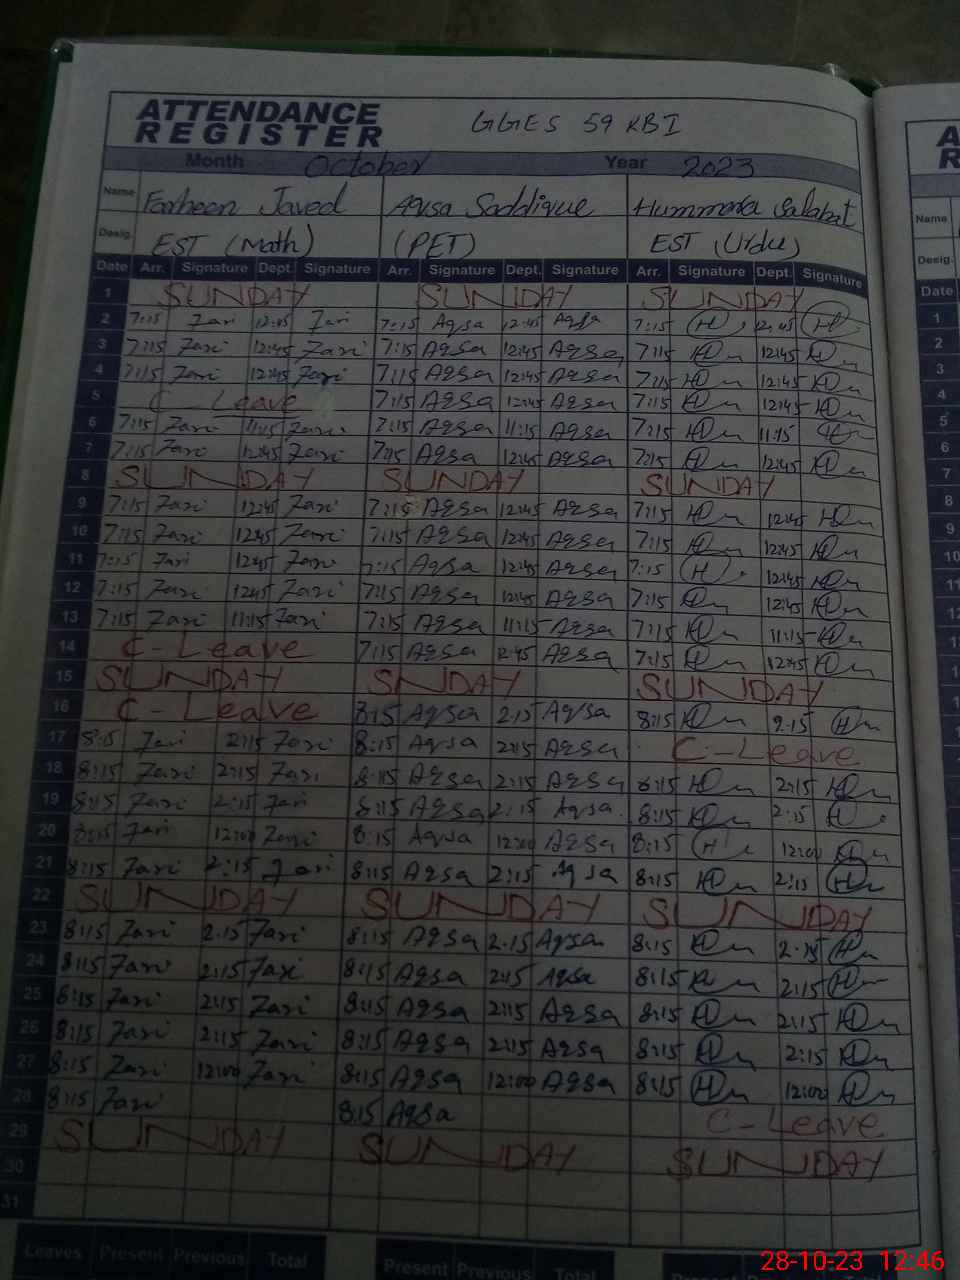 ATTENDANCE
REGISTER
GGES 59 KBI
Month October Year 2023
Name Farheen Javed Aqsa Saddique Hummera Salabat
Desig. EST (Math) (PET) EST (Urdu)
Date Arr. Signature Dept. Signature Arr. Signature Dept. Signature Arr. Signature Dept. Signature
1 SUNDAY SUNDAY SUNDAY
2 7:15 Fari 12:45 Fari 7:15 Aqsa 12:45 Aqsa 7:15 12:45
3 7:15 Fari 12:45 Fari 7:15 Aqsa 12:45 Aqsa 7:15 12:45
4 7:15 Fari 12:45 Fari 7:15 Aqsa 12:45 Aqsa 7:15 12:45
5 C-Leave 7:15 Aqsa 12:45 Aqsa 7:15 12:45
6 7:15 Fari 11:15 Fari 7:15 Aqsa 11:15 Aqsa 7:15 11:15
7 7:15 Fari 12:45 Fari 7:15 Aqsa 12:45 Aqsa 7:15 12:45
8 SUNDAY SUNDAY SUNDAY
9 7:15 Fari 12:45 Fari 7:15 Aqsa 12:45 Aqsa 7:15 12:45
10 7:15 Fari 12:45 Fari 7:15 Aqsa 12:45 Aqsa 7:15 12:45
11 7:15 Fari 12:45 Fari 7:15 Aqsa 12:45 Aqsa 7:15 12:45
12 7:15 Fari 12:45 Fari 7:15 Aqsa 12:45 Aqsa 7:15 12:45
13 7:15 Fari 11:15 Fari 7:15 Aqsa 11:15 Aqsa 7:15 11:15
14 C-Leave 7:15 Aqsa 12:45 Aqsa 7:15 12:45
15 SUNDAY SNDAY SUNDAY
16 C-Leave 8:15 Aqsa 2:15 Aqsa 8:15 2:15
17 8:15 Fari 2:15 Fari 8:15 Aqsa 2:15 Aqsa C-Leave
18 8:15 Fari 2:15 Fari 8:15 Aqsa 2:15 Aqsa 8:15 2:15
19 8:15 Fari 2:15 Fari 8:15 Aqsa 2:15 Aqsa 8:15 2:15
20 8:15 Fari 12:00 Fari 8:15 Aqsa 12:00 Aqsa 8:15 12:00
21 8:15 Fari 2:15 Fari 8:15 Aqsa 2:15 Aqsa 8:15 2:15
22 SUNDAY SUNDAY SUNDAY
23 8:15 Fari 2:15 Fari 8:15 Aqsa 2:15 Aqsa 8:15 2:15
24 8:15 Fari 2:15 Fari 8:15 Aqsa 2:15 Aqsa 8:15 2:15
25 8:15 Fari 2:15 Fari 8:15 Aqsa 2:15 Aqsa 8:15 2:15
26 8:15 Fari 2:15 Fari 8:15 Aqsa 2:15 Aqsa 8:15 2:15
27 8:15 Fari 12:00 Fari 8:15 Aqsa 12:00 Aqsa 8:15 12:00
28 8:15 Fari 8:15 Aqsa C-Leave
29 SUNDAY SUNDAY SUNDAY
30
31
Leaves Present Previous Total Present Previous Total Present
Name
Desig.
Date
1
2
3
4
5
6
7
8
9
10
11
12
28-10-23 12:46